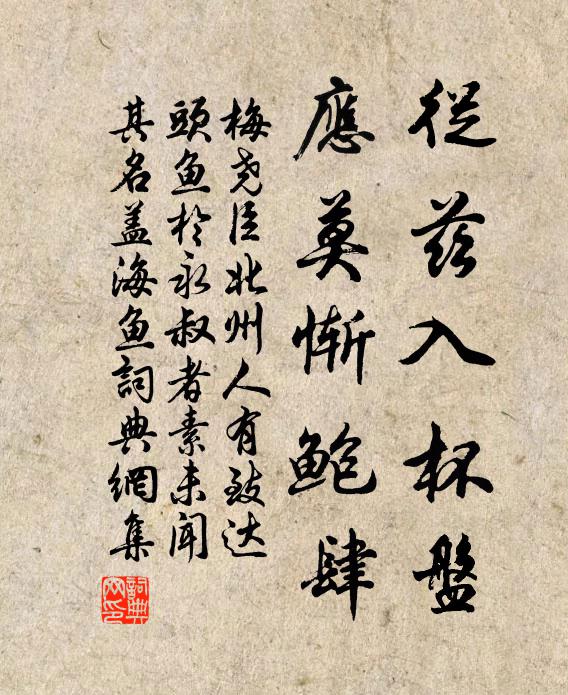 從茲入杯盤
應莫慚鮑肆
梅尧臣北州人有致达
頭鱼於永叔者素未聞
其名盖海鱼詞典網集
詞典网印